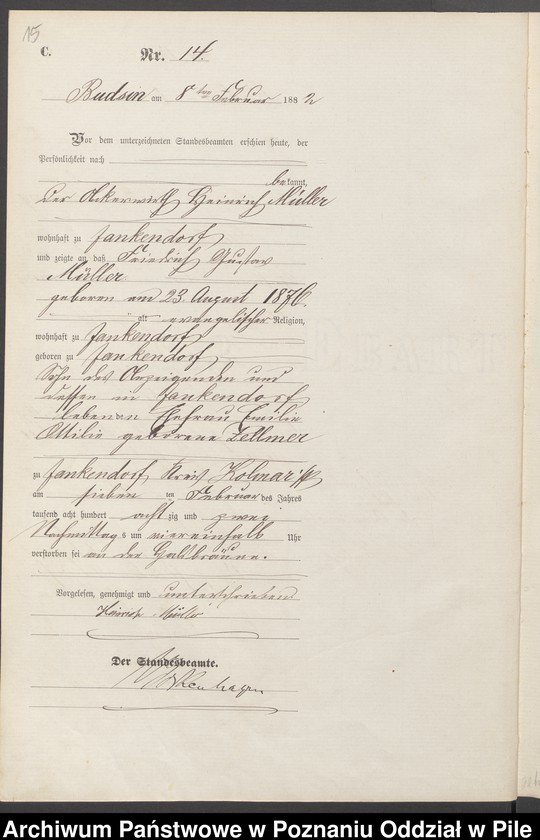 15
C.
Nr. 14.
Budsin am 8ten Februar 1882
Vor dem unterzeichneten Standesbeamten erschien heute, der
Persönlichkeit nach
bekannt,
Der Ackerwirth Heinrich Müller
wohnhaft zu Jankendorf
und zeigte an, daß Friedrich Gustav
Müller
geboren am 23. August 1876.
alt evangelischer Religion,
wohnhaft zu Jankendorf
geboren zu Jankendorf
Sohn des Anzeigenden und
dessen in Jankendorf
lebenden Ehefrau Emilie
Ottilie geborene Zellmer
zu Jankendorf Kreis Kolmar i/P
am sieben ten Februar des Jahres
tausend acht hundert achtzig und zwei
Nachmittags um viereinhalb Uhr
verstorben sei an der Halsbräune.
Vorgelesen, genehmigt und unterschrieben
Heinrich Müller
Der Standesbeamte.
Archiwum Państwowe w Poznaniu Oddział w Pile